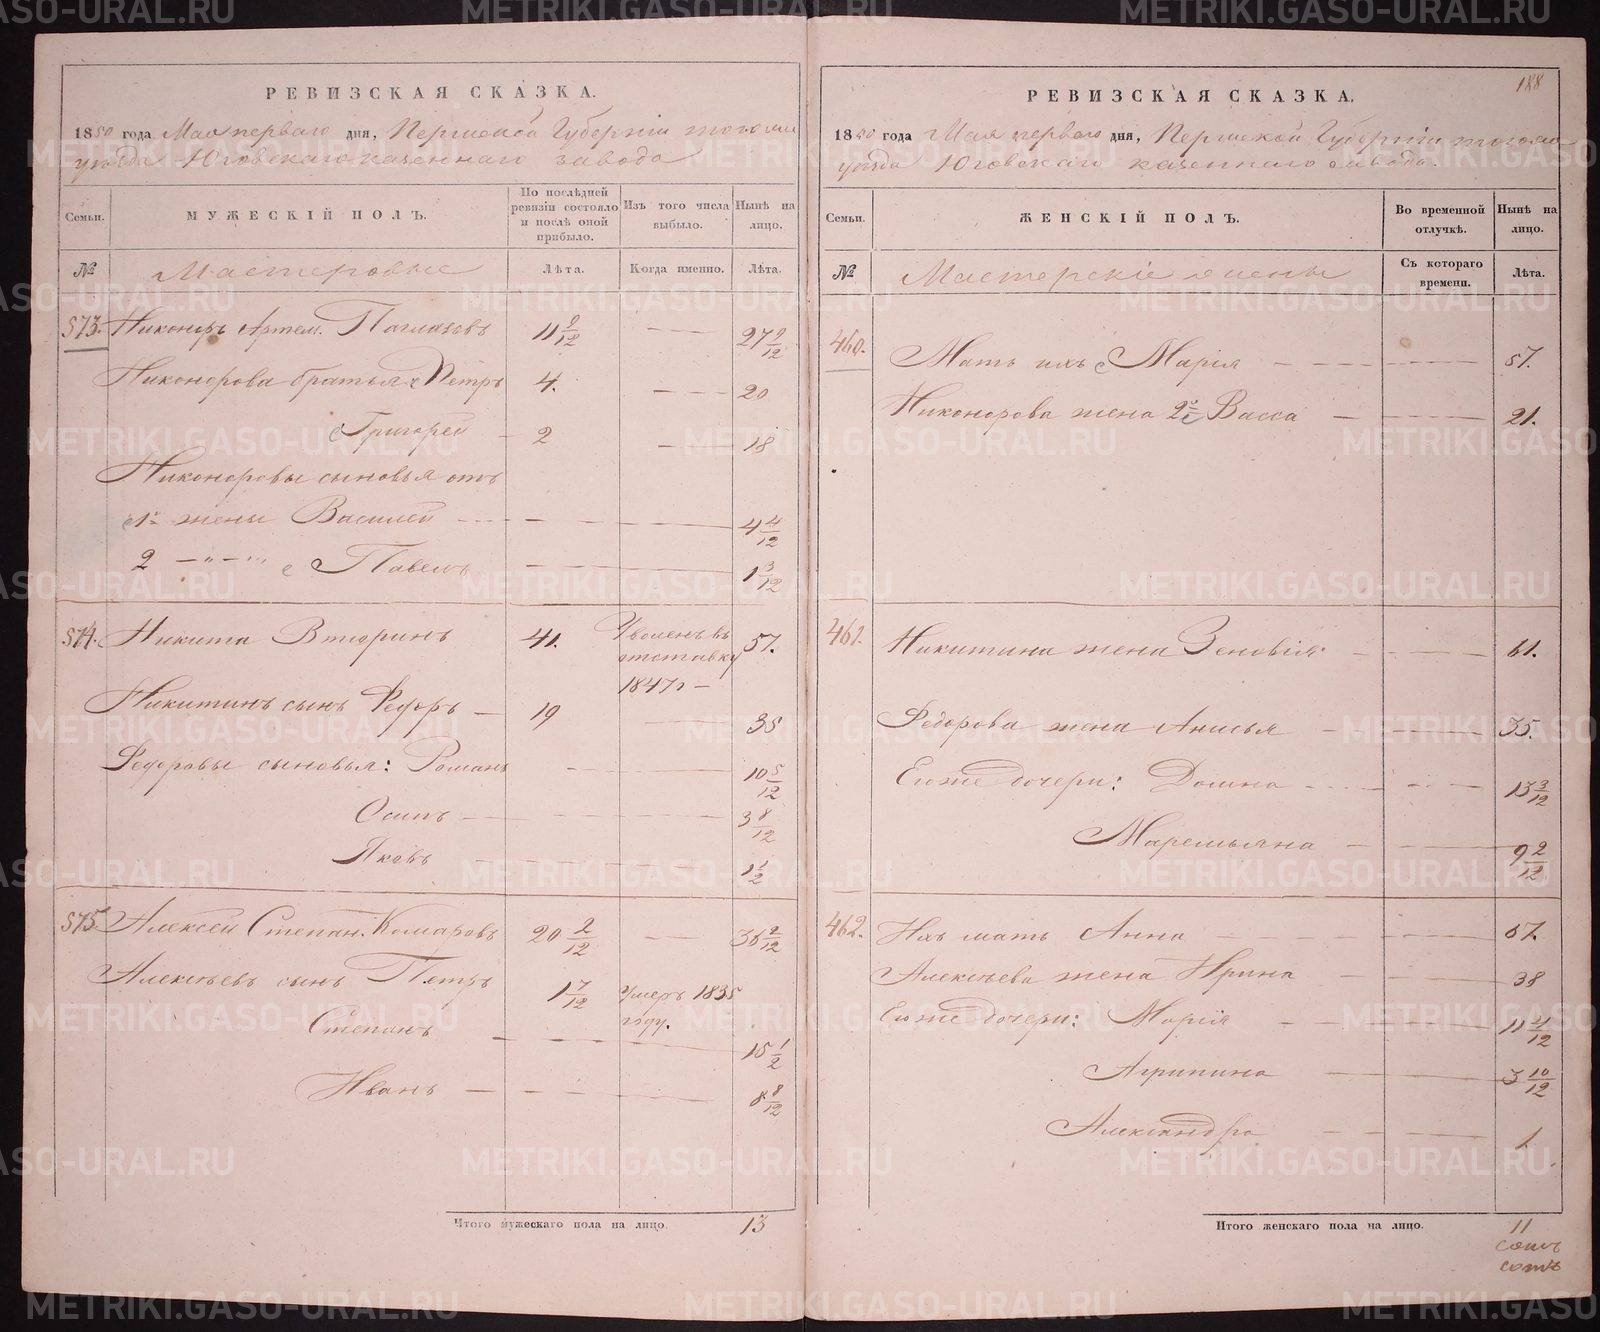 РЕВИЗСКАЯ СКАЗКА.
1850 года Мая перваго дня, Пермской Губернiи тогожъ
уѣзда Юговскаго казеннаго завода
Семьи.
МУЖЕСКIЙ ПОЛЪ.
По послѣдней ревизiи состояло и послѣ оной прибыло.
Изъ того числа выбыло.
Нынѣ на лицо.
№
Мастеровые
Лѣта.
Когда именно.
Лѣта.
573. Никоноръ Артем. 11 9/12 27 9/12
Никонорова братья Петръ 4. 20
Григорей 2 18
Никоноровы сыновья отъ
1й жены Василей 4 4/12
2 Павелъ 1 3/12
574. Никита Вторинъ 41. Уволенъ въ отставку 1847 г 57.
Никитинъ сынъ Федоръ 19 35
Федоровы сыновья: Романъ 10 5/12
Осипъ 3 8/12
Яковъ 1 1/2
575. Алексей Степан. Комаровъ 20 2/12 36 2/12
Алексѣевъ сынъ Петръ 1 7/12 умеръ 1835 году.
Степанъ 15 1/2
Иванъ 8 8/12
Итого мужескаго пола на лицо. 13
188
РЕВИЗСКАЯ СКАЗКА.
1850 года Мая перваго дня, Пермской Губернiи тогожъ
уѣзда Юговскаго казеннаго завода.
Семьи.
ЖЕНСКIЙ ПОЛЪ.
Во временной отлучкѣ.
Нынѣ на лицо.
№
Мастерскiе жены
Съ котораго времени.
Лѣта.
460. Мать ихъ Марiя 57.
Никонорова жена 2я Васса 21.
461. Никитина жена Зеновiя 61.
Федорова жена Анисья 35.
Ево же дочери: Домна 13 3/12
Маремьяна 9 2/12
462. Ихъ мать Анна 67.
Алексѣева жена Ирина 38
Ево же дочери: Марiя 11 4/12
Агрипина 3 10/12
Александра 1
Итого женскаго пола на лицо. 11
METRIKI.GASO-URAL.RU